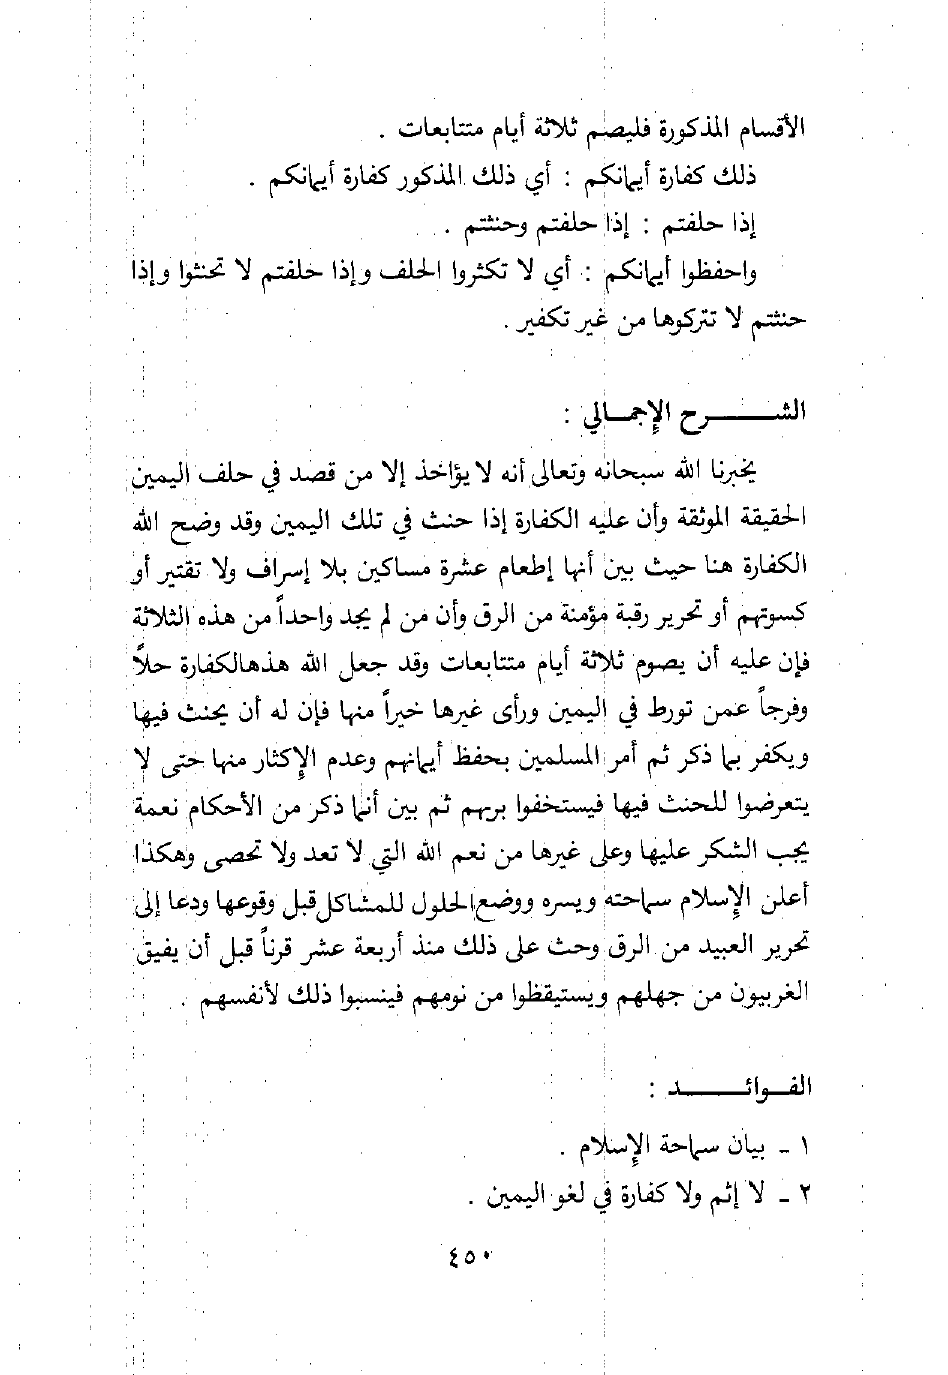 الأقسام المذكورة فليصم ثلاثة أيام متتابعات .
ذلك كفارة أيمانكم : أي ذلك المذكور كفارة أيمانكم .
إذا حلفتم : إذا حلفتم وحنثتم .
واحفظوا أيمانكم : أي لا تكثروا الحلف وإذا حلفتم لا تحنثوا وإذا
حنثتم لا تتركوها من غير تكفير .
الشـــــرح الإجمـالي :
يخبرنا الله سبحانه وتعالى أنه لا يؤاخذ إلا من قصد في حلف اليمين
الحقيقة الموثقة وأن عليه الكفارة إذا حنث في تلك اليمين وقد وضح الله
الكفارة هنا حيث بين أنها إطعام عشرة مساكين بلا إسراف ولا تقتير أو
كسوتهم أو تحرير رقبة مؤمنة من الرق وأن من لم يجد واحداً من هذه الثلاثة
فإن عليه أن يصوم ثلاثة أيام متتابعات وقد جعل الله هذهالكفارة حلاً
وفرجاً عمن تورط في اليمين ورأى غيرها خيراً منها فإن له أن يحنث فيها
ويكفر بما ذكر ثم أمر المسلمين بحفظ أيمانهم وعدم الإكثار منها حتى لا
يتعرضوا للحنث فيها فيستخفوا بربهم ثم بين أنما ذكر من الأحكام نعمة
يجب الشكر عليها وعلى غيرها من نعم الله التي لا تعد ولا تحصى وهكذا
أعلن الإسلام سماحته ويسره ووضع الحلول للمشاكل قبل وقوعها ودعا إلى
تحرير العبيد من الرق وحث على ذلك منذ أربعة عشر قرناً قبل أن يفيق
الغربيون من جهلهم ويستيقظوا من نومهم فينسبوا ذلك لأنفسهم .
الفــوائـــــد :
١ - بيان سماحة الإسلام .
٢ - لا إثم ولا كفارة في لغو اليمين .
٤٥٠